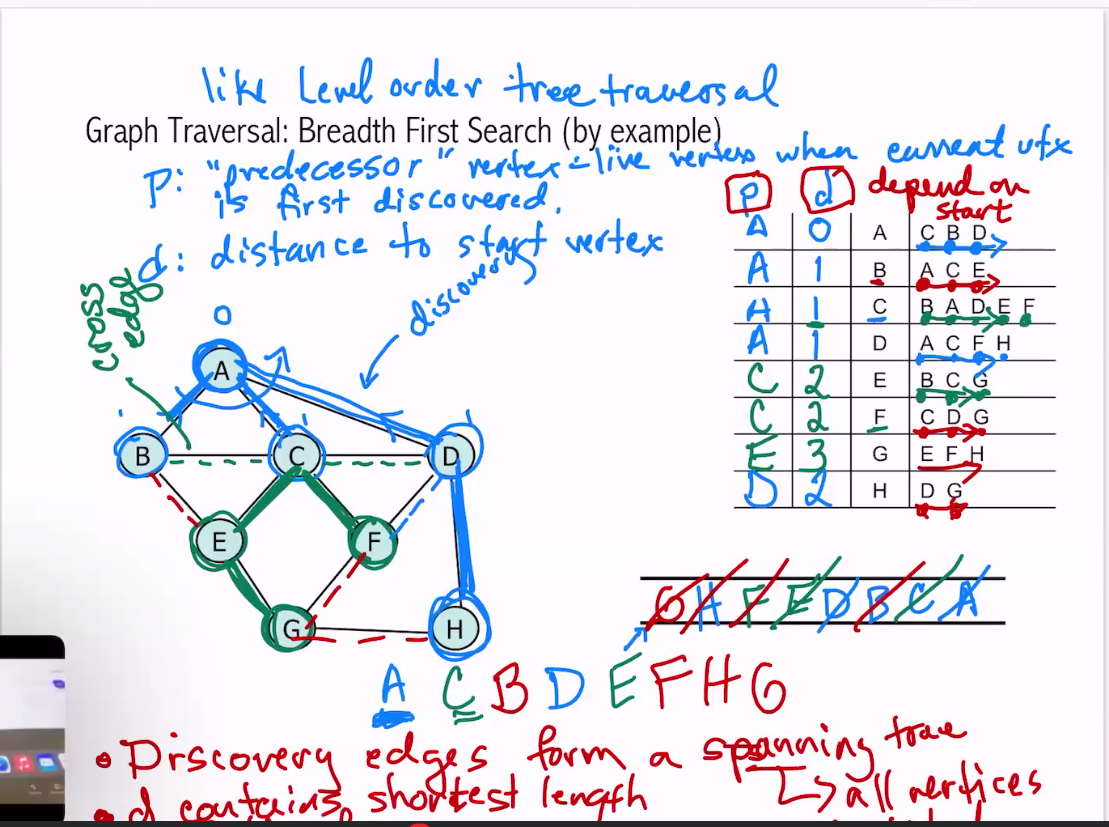 like Level order tree traversal
Graph Traversal: Breadth First Search (by example)
p: "predecessor" vertex = live vertex when current vtx
is first discovered.
d: distance to start vertex
p d depend on
start
A 0 A C B D
A 1 B A C E
A 1 C B A D E F
A 1 D A C F H
C 2 E B C G
C 2 F C D G
E 3 G E F H
D 2 H D G
cross
edge
discovery
0
A
1 1 1
B C D
E F
G H
G H F E D B C A
A C B D E F H G
• Discovery edges form a spanning tree
↳ all vertices
• d contains shortest length